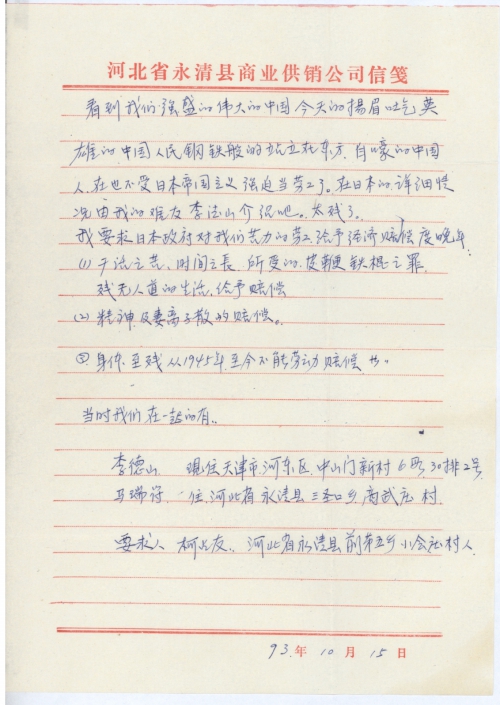 河北省永清县商业供销公司信笺
看到我们强盛的伟大的中国今天的扬眉吐气英
雄的中国人民钢铁般的站立在东方.自豪的中国
人.在也不受日本帝国主义强迫当劳工了。在日本的详细情
况由我的难友李德山介绍吧。太残了。
我要求日本政府对我们苦力的劳工给予经济赔偿度晚年.
(1)干活之苦、时间之长,所受的.皮鞭铁棍之罪,
残无人道的生活,给予赔偿
(2)精神.及妻离子散的赔偿。
③.身体.至残从1945年.至今不能劳动赔偿
当时我们在一起的有..
李德山. 现住天津市河东区.中山门新村6段,30排2号
马瑞符. 住.河北省永清县三圣口乡 武 村.
要求人 柯 友.. 河北省永清县前第五乡小 村人.
93.年10月15日